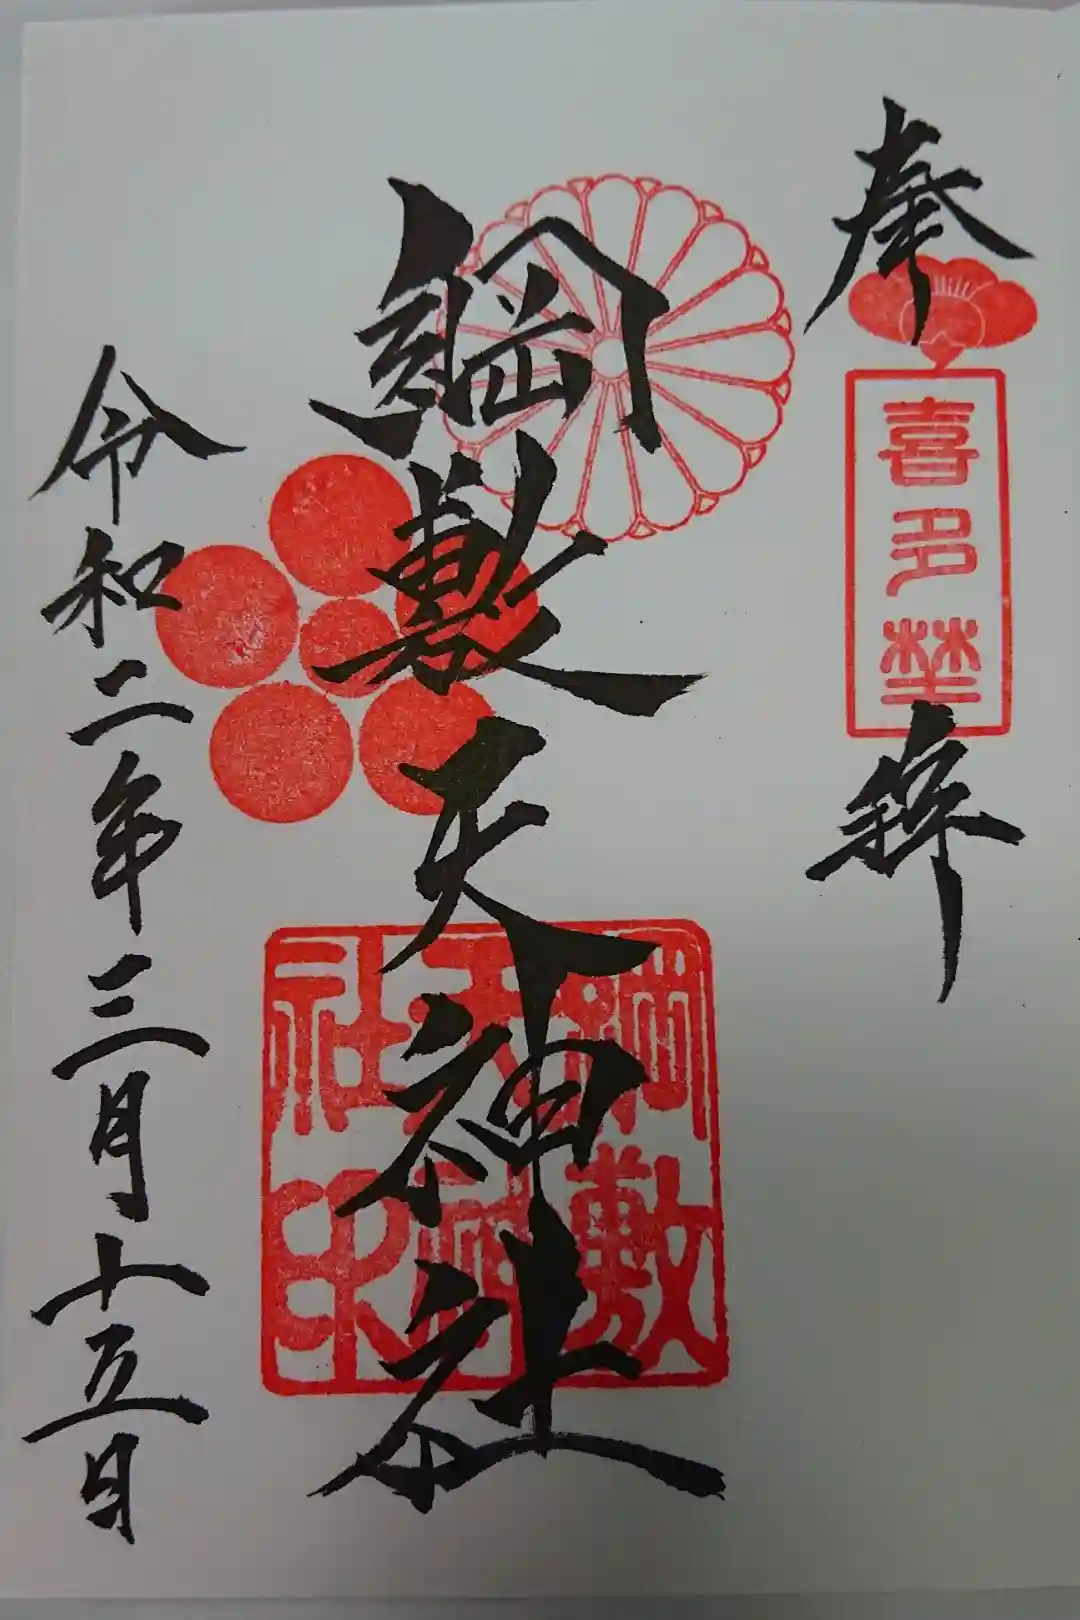 奉拝
喜多埜
綱敷天神社
綱敷
天神
社印
令和二年三月十五日